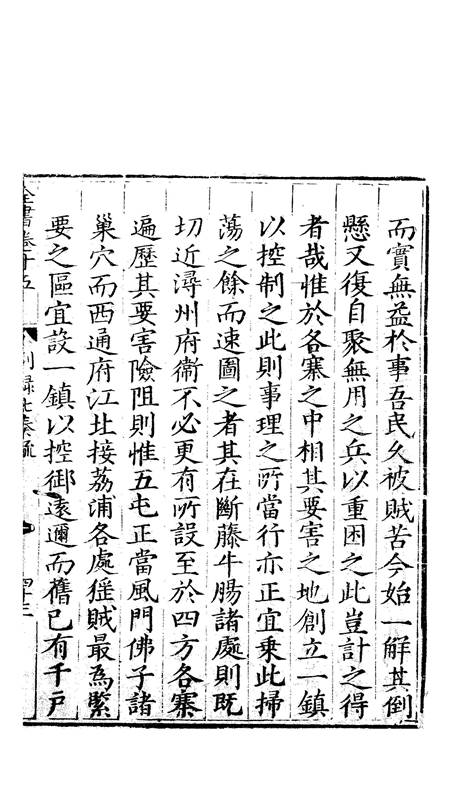 而實無益於事吾民久被賊苦今始一解其倒
懸又復自聚無用之兵以重困之此豈計之得
者哉惟於各寨之中相其要害之地創立一鎮
以控制之此則事理之所當行亦正宜乘此掃
蕩之餘而速圖之者其在斷藤牛腸諸處則既
切近潯州府衛不必更有所設至於四方各寨
遍歷其要害險阻則惟五屯正當風門佛子諸
巢穴而西通府江北接荔浦各處猺賊最為緊
要之區宜設一鎮以控御遠邇而舊已有千戶
全書卷十五
別錄七奏疏
四十三